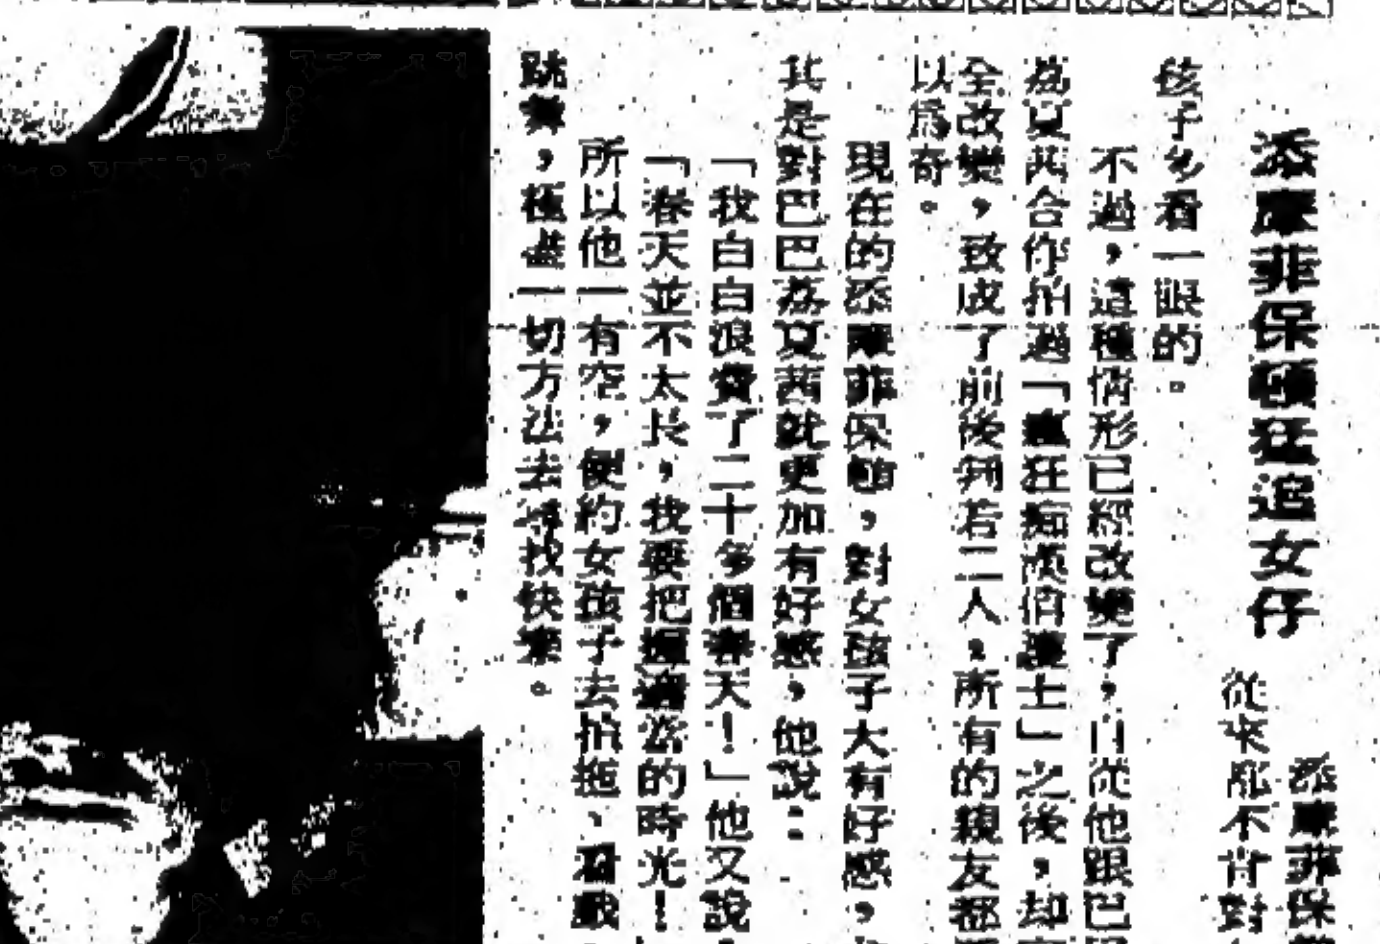 添摩菲保頓狂追女仔
添摩菲保
從來都不肯對
孩子多看一眼的。
不過，這種情形已經改變了，自從他跟巴
荔夏茜合作拍過「瘋狂痴漢俏護士」之後，却
全改變，致成了前後判若二人，所有的親友都
以爲奇。
現在的添摩菲保頓，對女孩子大有好感，
其是對巴巴荔夏茜就更加有好感，他說：
「我白白浪費了二十多個春天！」他又說
「春天並不太長，我要把握適當的時光！
所以他一有空，便約女孩子去拍拖、看戲
跳舞，極盡一切方法去尋找快樂。